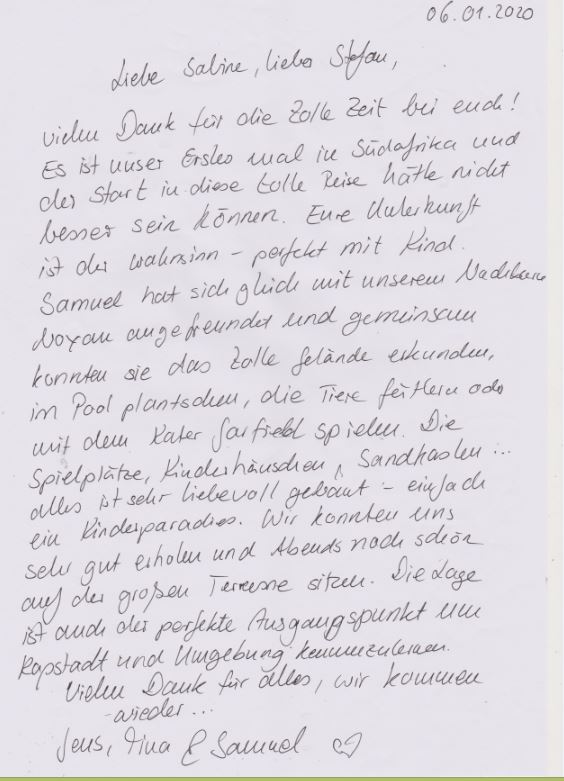 06.01.2020
Liebe Sabine, lieber Stefan,
vielen Dank für die tolle Zeit bei euch!
Es ist unser Erstes mal in Südafrika und
der Start in diese tolle Reise hätte nicht
besser sein können. Eure Unterkunft
ist der wahnsinn - perfekt mit Kind.
Samuel hat sich gleich mit unserem Nachbarn
angefreundet und gemeinsam
konnten sie das tolle Gelände erkunden,
im Pool plantschen, die Tiere füttern oder
mit dem Kater Garfield spielen. Die
Spielplätze, Kinderhäuschen, Sandkasten...
alles ist sehr liebevoll gebaut - einfach
ein Kinderparadies. Wir konnten uns
sehr gut erholen und Abends noch schön
auf der großen Terrasse sitzen. Die Lage
ist auch der perfekte Ausgangspunkt um
Kapstadt und Umgebung kennenzulernen.
Vielen Dank für alles, wir kommen
wieder...
Jens, Tina & Samuel